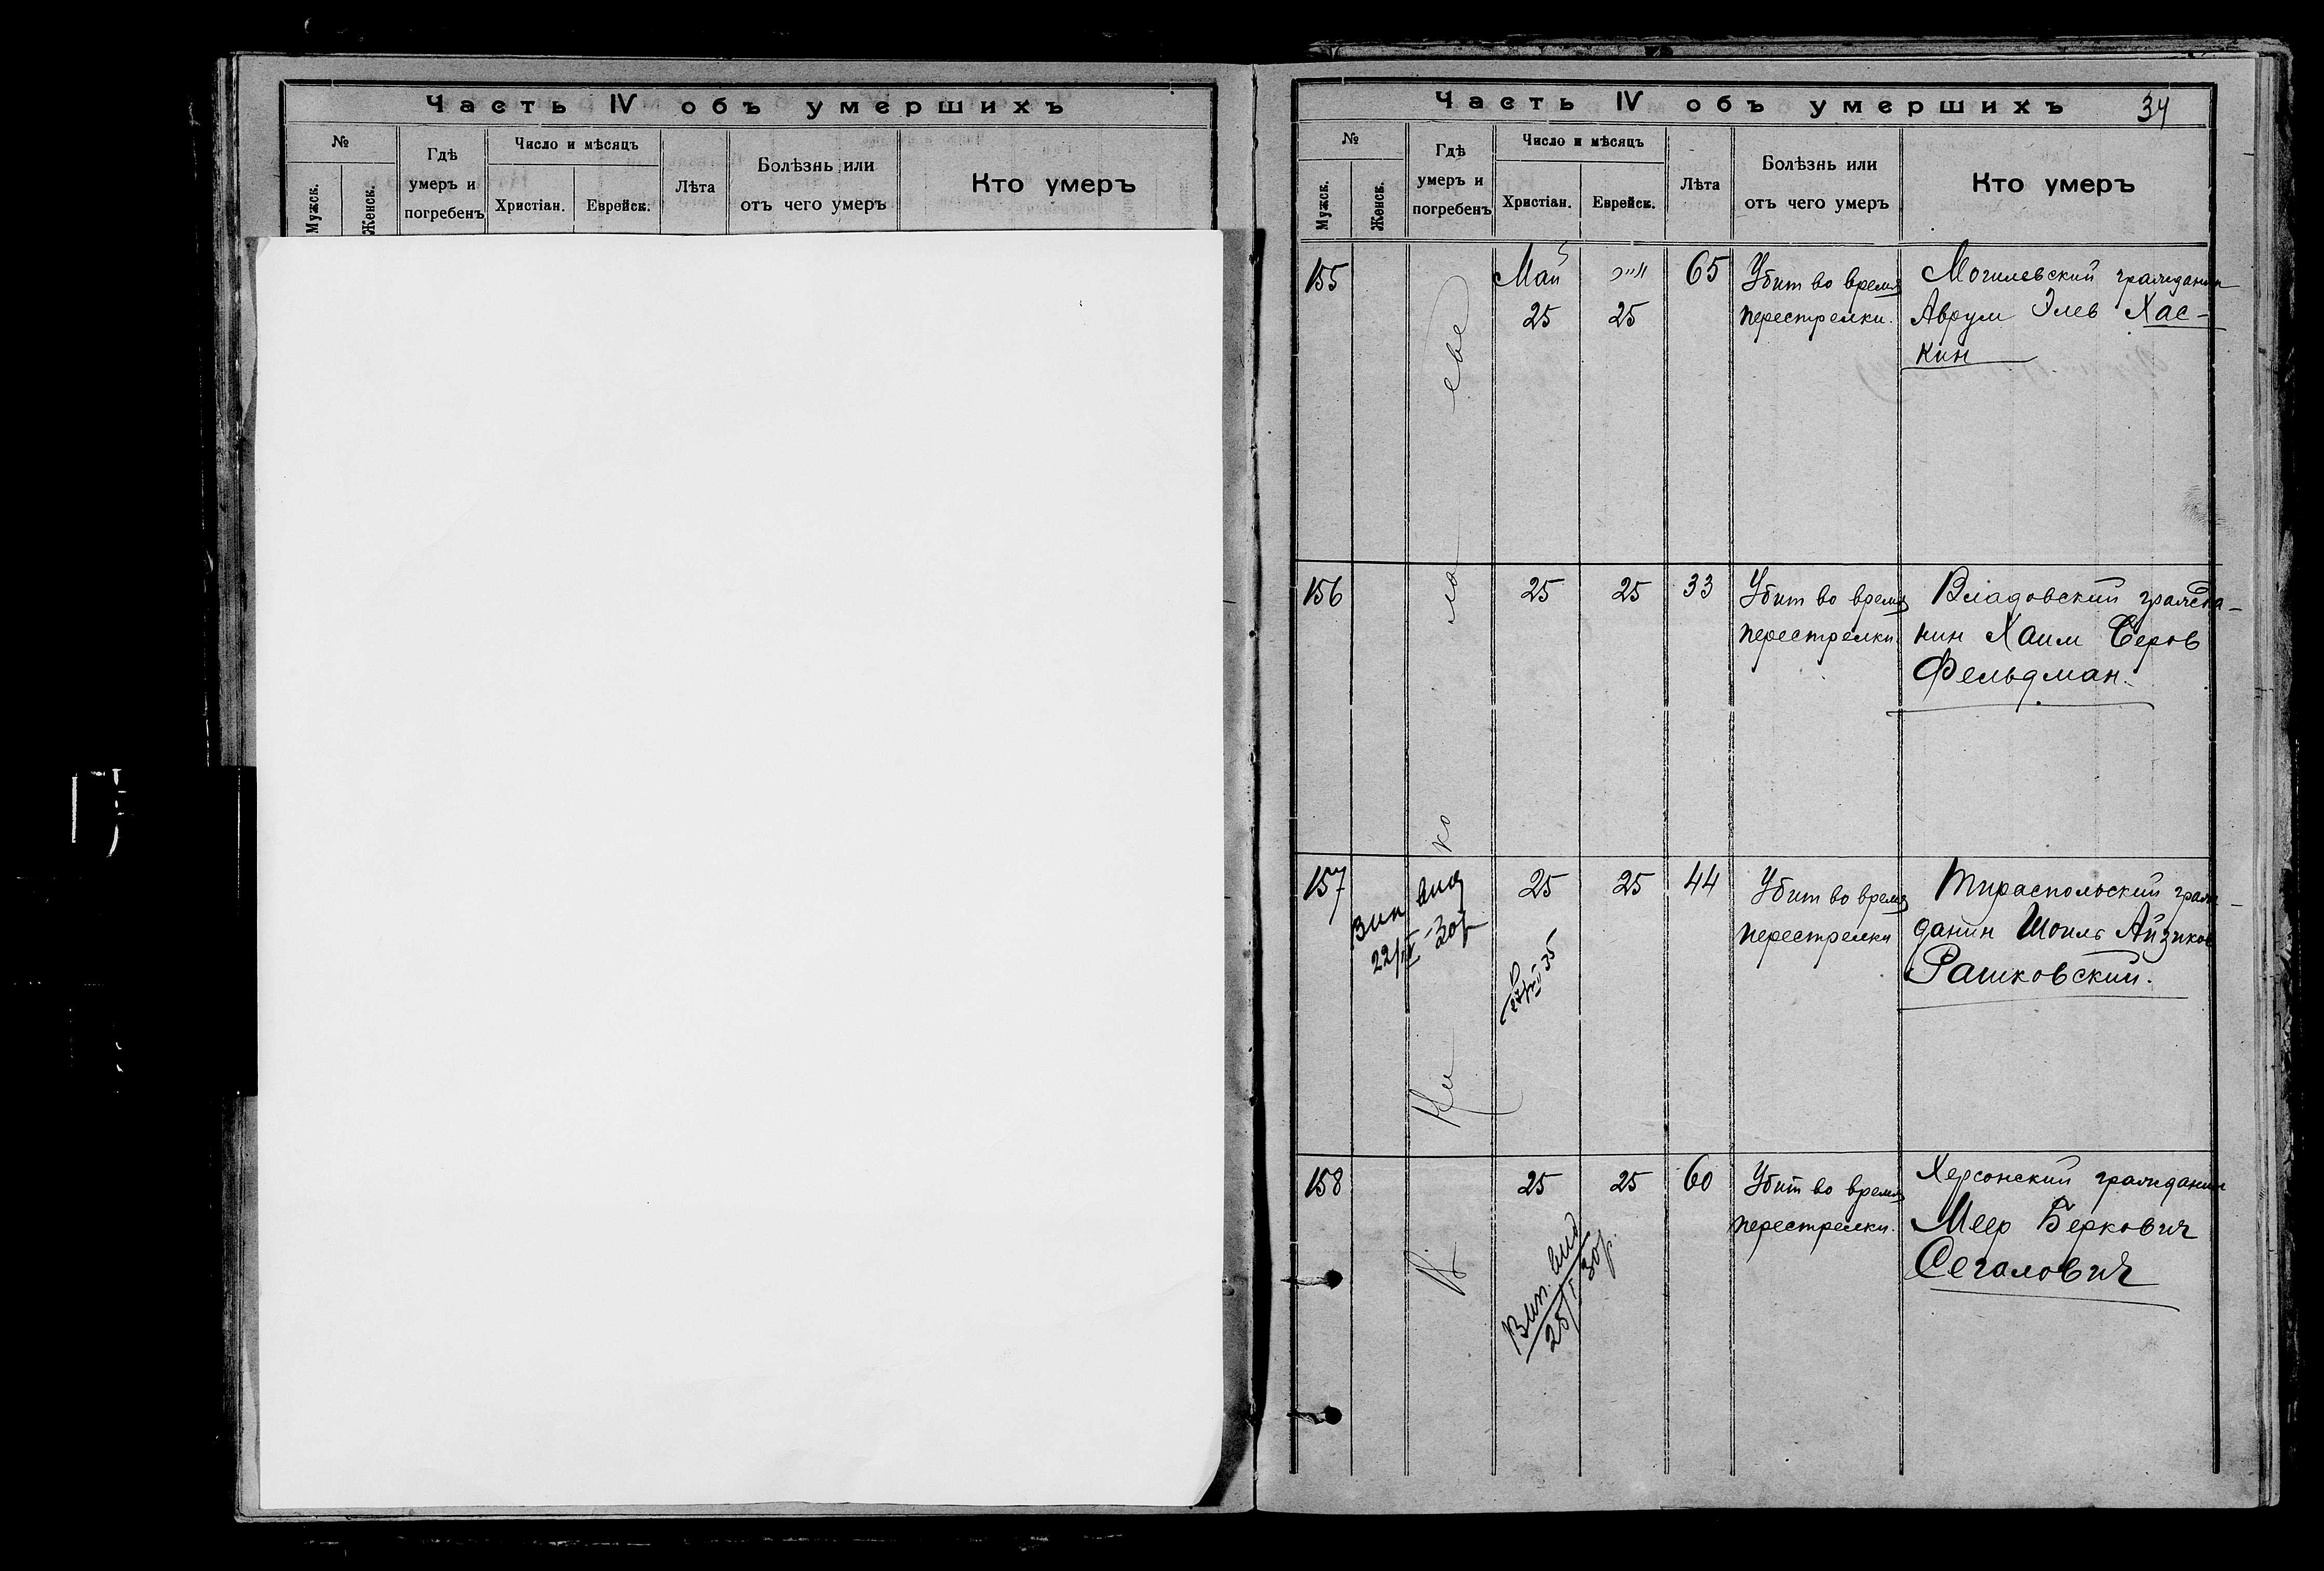 Часть IV объ умершихъ
№
Мужск.
Женск.
Гдѣ
умеръ и
погребенъ
Число и мѣсяцъ
Христіан.
Еврейск.
Лѣта
Болѣзнь или
отъ чего умеръ
Кто умеръ
Часть IV объ умершихъ
34
№
Мужск.
Женск.
Гдѣ
умеръ и
погребенъ
Число и мѣсяцъ
Христіан.
Еврейск.
Лѣта
Болѣзнь или
отъ чего умеръ
Кто умеръ
В Ни ко ла еве
155
Май
25
25
65
Убит во время
перестрелки.
Могилевский гражданин
Аврум Элев Хас-
кин
156
25
25
33
Убит во время
перестрелки.
Владовский гражда-
нин Хаим Беров
Фельдман.
157
Вип вид
22/IV-30р
25
25
44
Убит во время
перестрелки
Тираспольский граж-
данин Шоиль Айзиков
Рашковский.
158
25
25
60
Вип. вид
25/I 30р.
Убит во время
перестрелки.
Херсонский гражданин
Меер Беркович
Сегалович